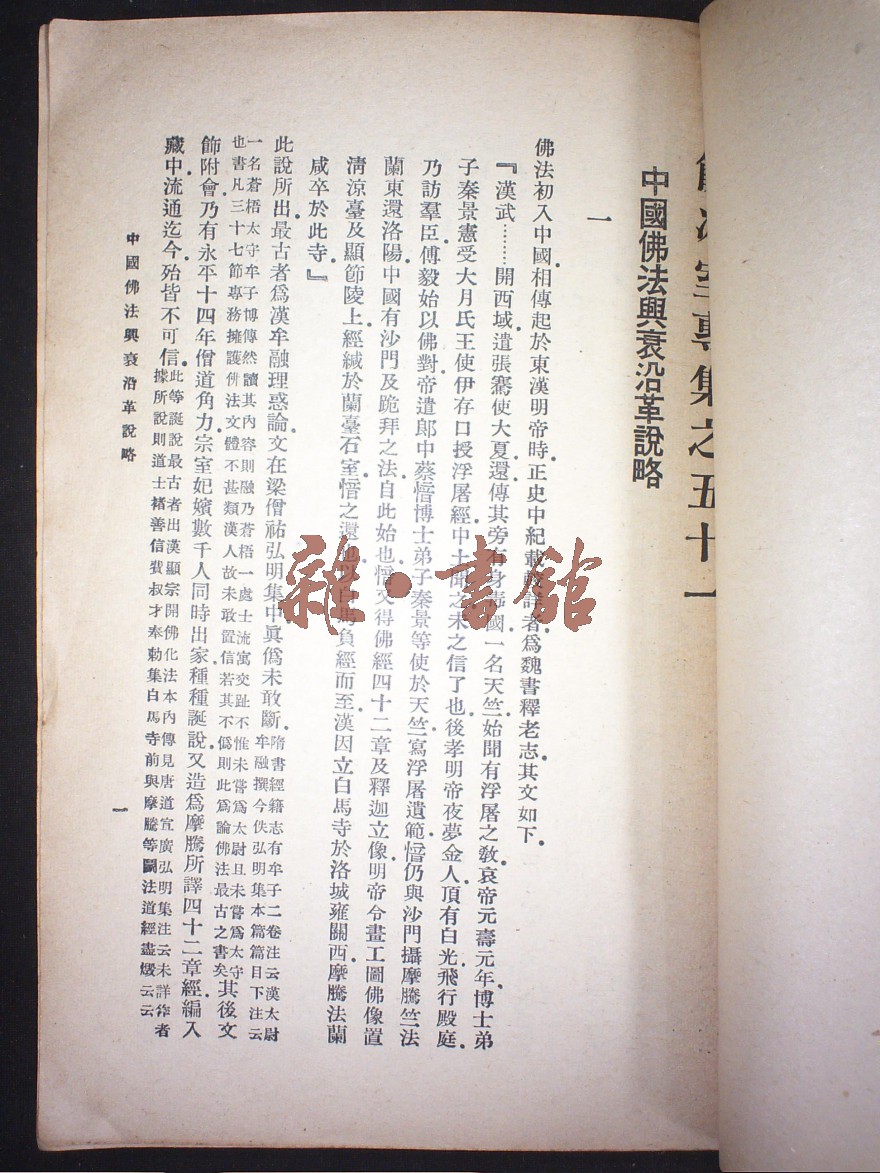 飲冰室專集之五十一
中國佛法興衰沿革說略
一
佛法初入中國．相傳起於東漢明帝時．正史中紀載較詳者爲魏書釋老志．其文如下．
『漢武……開西域．遣張騫使大夏．還傳其旁有身毒國．一名天竺．始聞有浮屠之敎．哀帝元壽元年．博士弟
子秦景憲受大月氏王使伊存口授浮屠經．中土聞之．未之信了也．後孝明帝夜夢金人．頂有白光．飛行殿庭．
乃訪羣臣．傅毅始以佛對．帝遣郞中蔡愔博士弟子秦景等使於天竺．寫浮屠遺範．愔仍與沙門攝摩騰竺法
蘭東還洛陽．中國有沙門及跪拜之法．自此始也．愔又得佛經四十二章及釋迦立像．明帝令畫工圖佛像置
淸涼臺及顯節陵上．經緘於蘭臺石室．愔之還也．以白馬負經而至．漢因立白馬寺於洛城雍關西．摩騰法蘭
咸卒於此寺．』
此說所出．最古者爲漢牟融理惑論．文在梁僧祐弘明集中．眞僞未敢斷．
隋書經籍志有牟子二卷注云漢太尉
牟融撰今佚弘明集本篇篇目下注云
一名蒼梧太守牟子博傳然讀其內容則融乃蒼梧一處士流寓交趾不惟未嘗爲太尉且未嘗爲太守
也書凡三十七節專務擁護佛法文體不甚類漢人故未敢置信若其不僞則此爲論佛法最古之書矣
其後文
飾附會．乃有永平十四年僧道角力．宗室妃嬪數千人同時出家種種誕說．又造爲摩騰所譯四十二章經．編入
藏中．流通迄今．殆皆不可信．
此等誕說最古者出漢顯宗開佛化法本內傳見唐道宣廣弘明集注云未詳作者
據所說則道士褚善信費叔才奉勅集白馬寺前與摩騰等鬭法道經盡燬云云
中國佛法興衰沿革說略
一
雜·書館